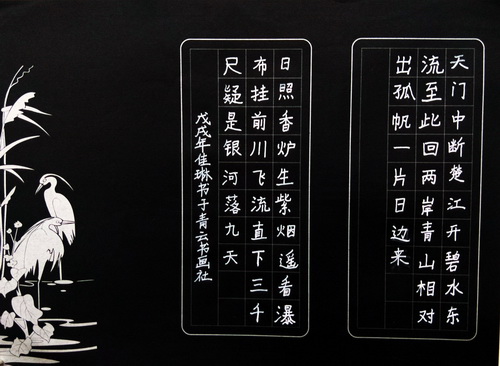 天门中断楚江开碧水东
流至此回两岸青山相对
出孤帆一片日边来
日照香炉生紫烟遥看瀑
布挂前川飞流直下三千
尺疑是银河落九天
戊戌年佳琳书于青云书画社